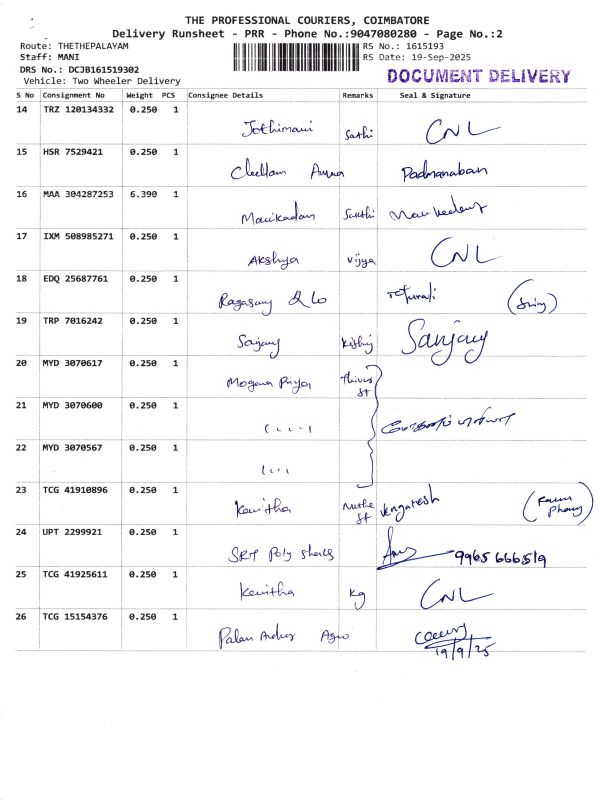 THE PROFESSIONAL COURIERS, COIMBATORE
Delivery Runsheet - PRR - Phone No.:9047080280 - Page No.:2
Route: THETHEPALAYAM RS No.: 1615193
Staff: MANI RS Date: 19-Sep-2025
DRS No.: DCJB161519302 DOCUMENT DELIVERY
Vehicle: Two Wheeler Delivery
S No Consignment No Weight PCS Consignee Details Remarks Seal & Signature
14 TRZ 120134332 0.250 1
Jothimani Sathi CNL
15 HSR 7529421 0.250 1
Chellam Amma Padmanaban
16 MAA 304287253 6.390 1
Manikadan Sakthi
17 IXM 508985271 0.250 1
Akshya Vijya CNL
18 EDQ 25687761 0.250 1
Ragasamy & Co
19 TRP 7016242 0.250 1
Sanjay Sanjay
20 MYD 3070617 0.250 1
Mogana Priya St
21 MYD 3070600 0.250 1
22 MYD 3070567 0.250 1
23 TCG 41910896 0.250 1
Kavitha Muthu St Vengatesh
24 UPT 2299921 0.250 1
SRT Poly 9965666519
25 TCG 41925611 0.250 1
Kavitha Kg CNL
26 TCG 15154376 0.250 1
Palani Agro
19/9/25